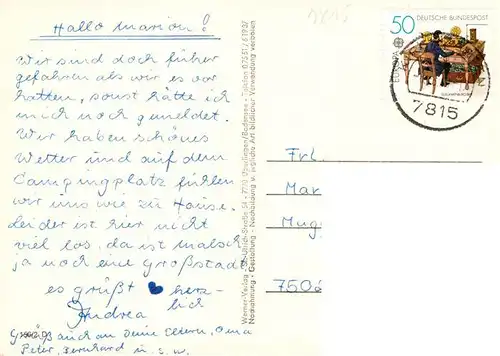 Hallo Marion!
Wir sind doch früher
gefahren als wir es vor
hatten, sonst hätte ich
mich noch gemeldet.
Wir haben schönes
Wetter und auf dem
Campingplatz fühlen
wir uns wie zu Hause.
Leider ist hier nicht
viel los, da ist
ja noch eine Großstadt
es grüßt herz-
lich
Andrea
Grüße auch an Deine Eltern, Oma
Peter, Bernhard u. s. w.
Werner-Verlag · St.-Ulrich-Straße 54 · 7770 Überlingen/Bodensee · Telefon 07551/61937
Nachahmung · Gestaltung · Nachbildung u. jegliche Art bildlicher Verwendung verboten
50 DEUTSCHE BUNDESPOST
EUROPA
7815
Frl.
Mar
Mug
7506